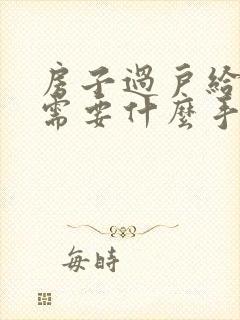 房子過戶給
需要什麼手
每時